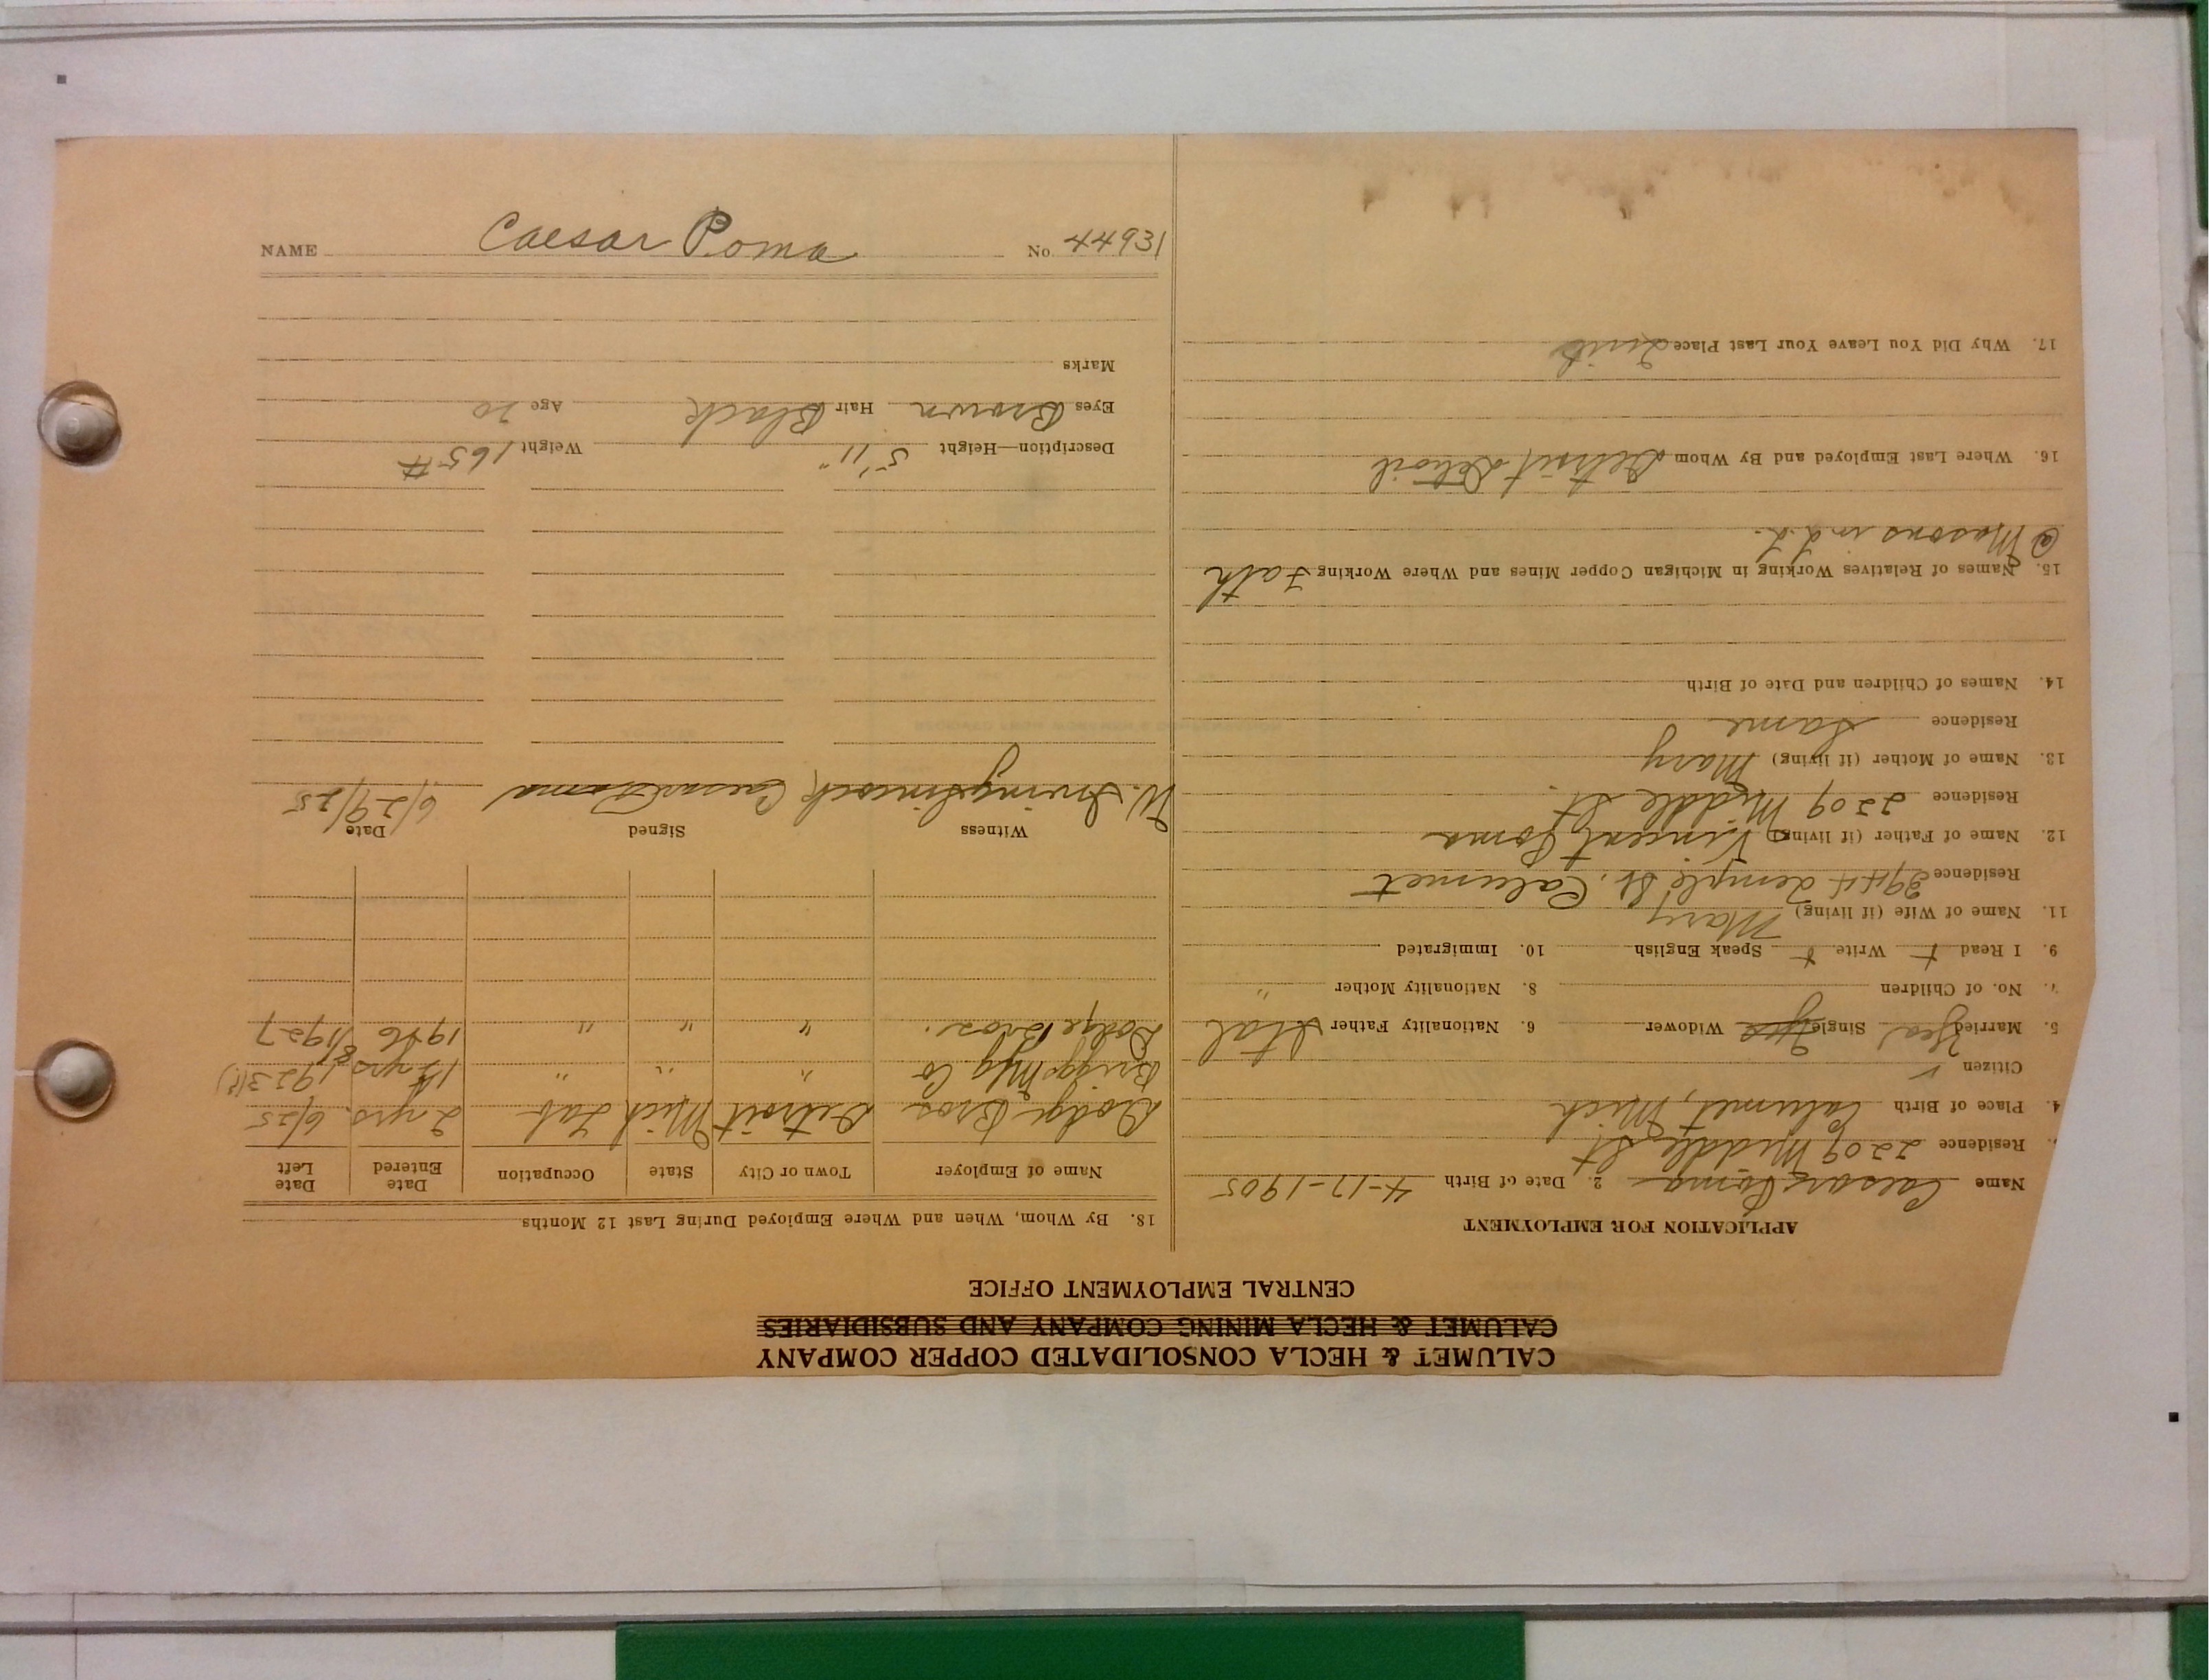 CALUMET & HECLA CONSOLIDATED COPPER COMPANY
CALUMET & HECLA MINING COMPANY AND SUBSIDIARIES
CENTRAL EMPLOYMENT OFFICE
APPLICATION FOR EMPLOYMENT
Name Caesar Poma 2. Date of Birth 4-17-1905
Residence 2209 Middle St
4. Place of Birth Calumet, Mich
Citizen ✓
5. Married Yes Single Widower 6. Nationality Father Ital
7. No. of Children 8. Nationality Mother "
9. I Read + Write + Speak English 10. Immigrated
11. Name of Wife (if living) Mary
Residence 3944 Temple St. Calumet
12. Name of Father (if living) Vincent Poma
Residence 2209 Middle St.
13. Name of Mother (if living) Mary
Residence Same
14. Names of Children and Date of Birth
15. Names of Relatives Working in Michigan Copper Mines and Where Working Fath
@ Masons in L.L.
16. Where Last Employed and By Whom Detroit Detroit
17. Why Did You Leave Your Last Place Quit
18. By Whom, When and Where Employed During Last 12 Months
Name of Employer Town or City State Occupation Date Entered Date Left
Dodge Bros Detroit Mich Lab 2 yrs. 6/25
Briggs Mfg. Co " " " 1½ yrs 1923(?)
Dodge Bros. " " " 1926 8/1927
Witness Signed Date
W. Irving Simcock Caesar Poma 6/29/25
Description—Height 5'11" Weight 165 #
Eyes Brown Hair Black Age 20
Marks
NAME Caesar Poma No. 44931